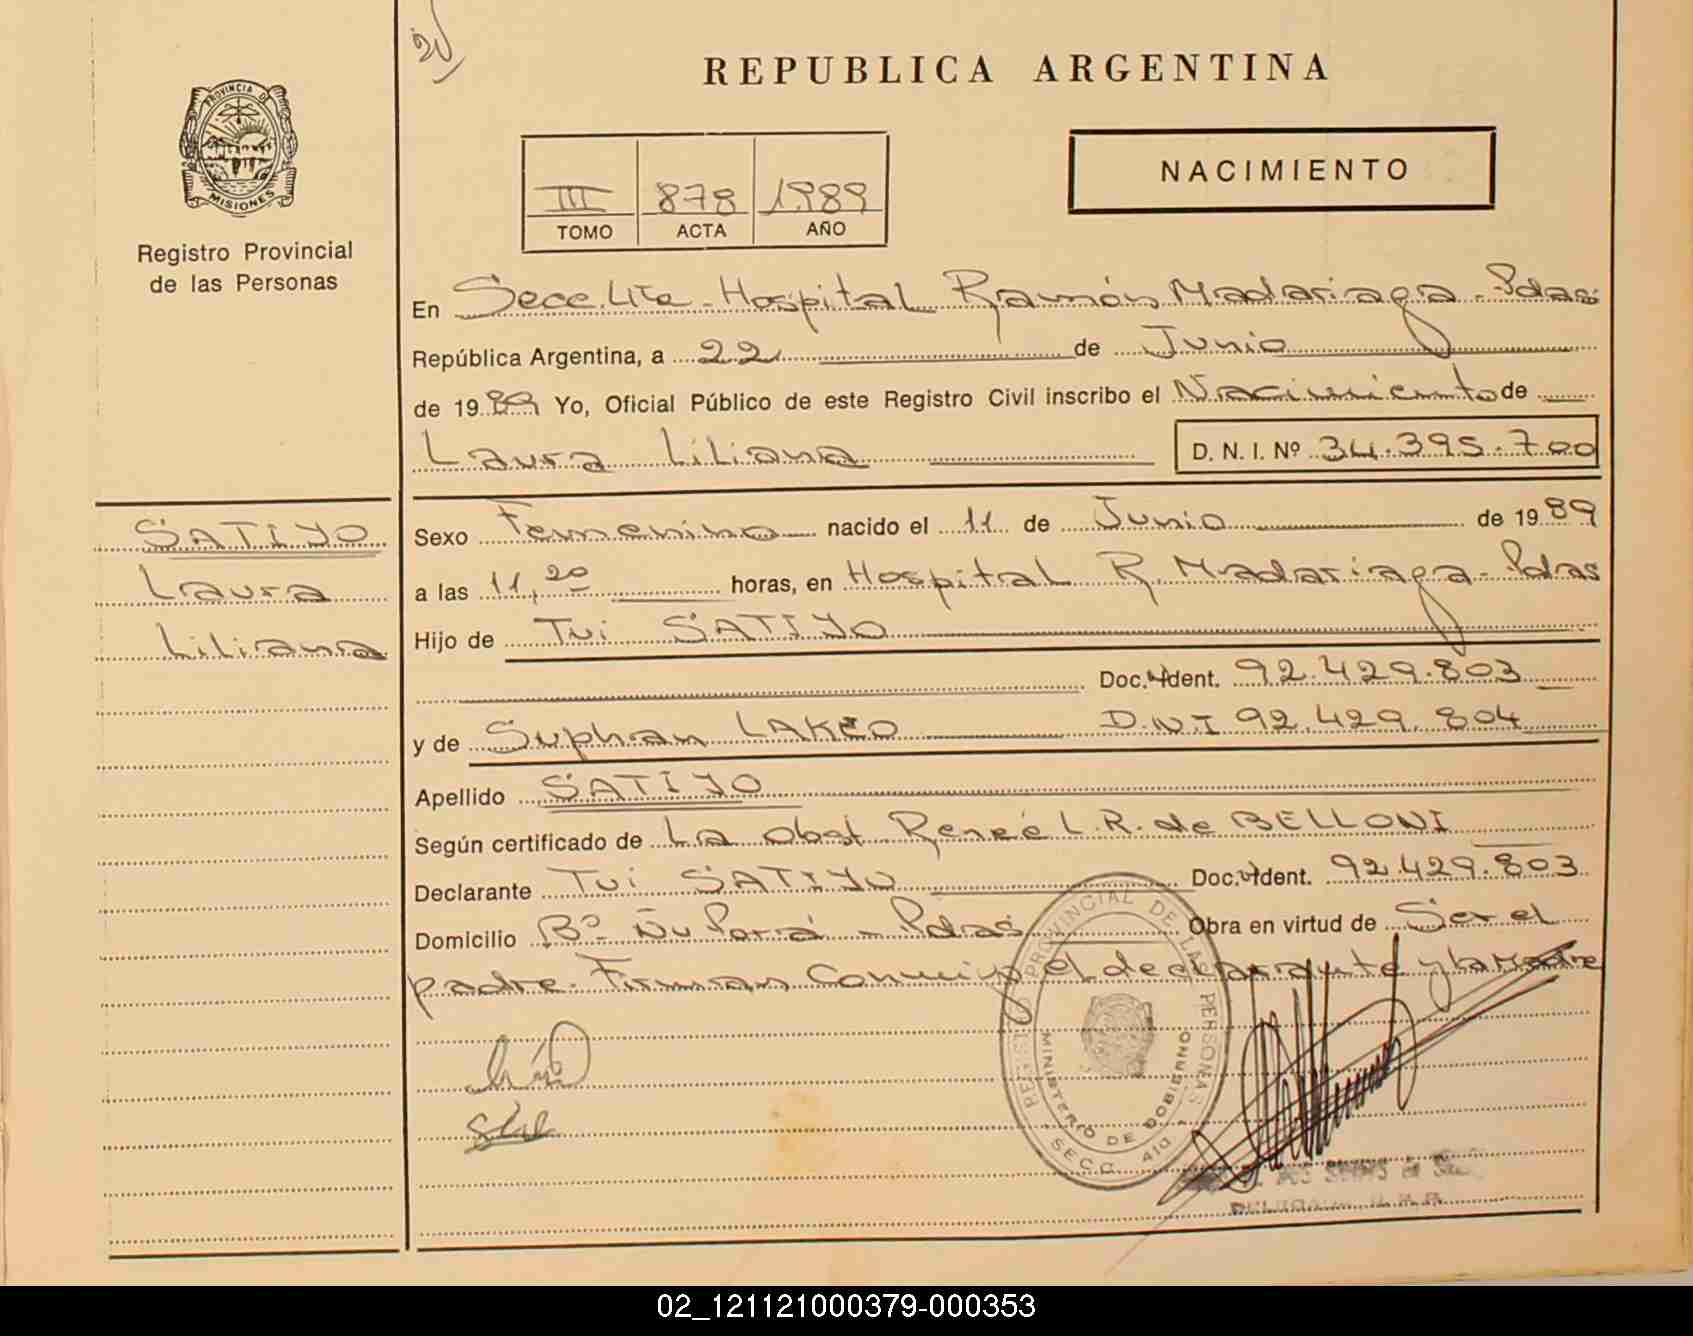 REPUBLICA ARGENTINA
PROVINCIA DE
MISIONES
Registro Provincial
de las Personas
III 878 1989
TOMO ACTA AÑO
NACIMIENTO
En Secc 4ta - Hospital Ramón Madariaga - Pdas
República Argentina, a 22 de Junio
de 1989 Yo, Oficial Público de este Registro Civil inscribo el Nacimiento de
Laura Liliana D. N. I. Nº 34.395.700
SATIJO
Laura
Liliana
Sexo Femenino nacido el 11 de Junio de 1989
a las 11,20 horas, en Hospital R. Madariaga - Pdas
Hijo de Tui SATIJO
Doc. Ident. 92.429.803
y de Suphan LAKEO D.N.I 92.429.804
Apellido SATIJO
Según certificado de La obst Reneé L. R. de BELLONI
Declarante Tui SATIJO Doc. Ident. 92.429.803
Domicilio Bº Ñu Porá - Pdas Obra en virtud de Ser el
padre. Firman Conmigo el declarante y la Madre
REGISTRO PROVINCIAL DE LAS PERSONAS
MINISTERIO DE GOBIERNO
SECC. 4ta
02_121121000379-000353